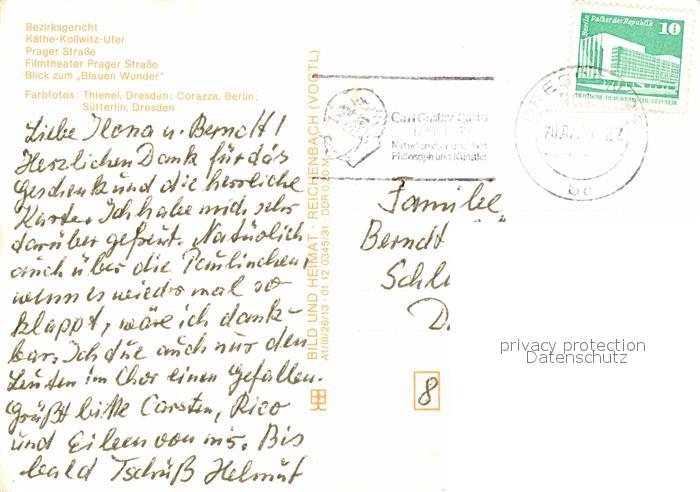 Bezirksgericht
Käthe-Kollwitz-Ufer
Prager Straße
Filmtheater Prager Straße
Blick zum „Blauen Wunder"
Farbfotos: Thienel, Dresden; Corazza, Berlin;
Sütterlin, Dresden
Liebe Ilona u. Berndt!
Herzlichen Dank für das
Geschenk und die herrliche
Karte. Ich habe mich sehr
darüber gefreut. Natürlich
auch über die Paulinchen,
wenn es wieder mal so
klappt, wäre ich dank-
bar. Ich tue auch nur den
Leuten im Chor einen Gefallen.
Grüßt bitte Carsten, Rico
und Eileen von mir. Bis
bald Tschüß Helmut
BILD UND HEIMAT · REICHENBACH (VOGTL)
A1/III/26/13 · 01 12 0345/31 · DDR 0,20 M
Carl Gustav Carus
Naturforscher und Arzt
Philosoph und Künstler
DRESDEN
Berlin Palast der Republik 10
DEUTSCHE DEMOKRATISCHE REPUBLIK
Familie
Berndt
Schl
D
8
privacy protection
Datenschutz